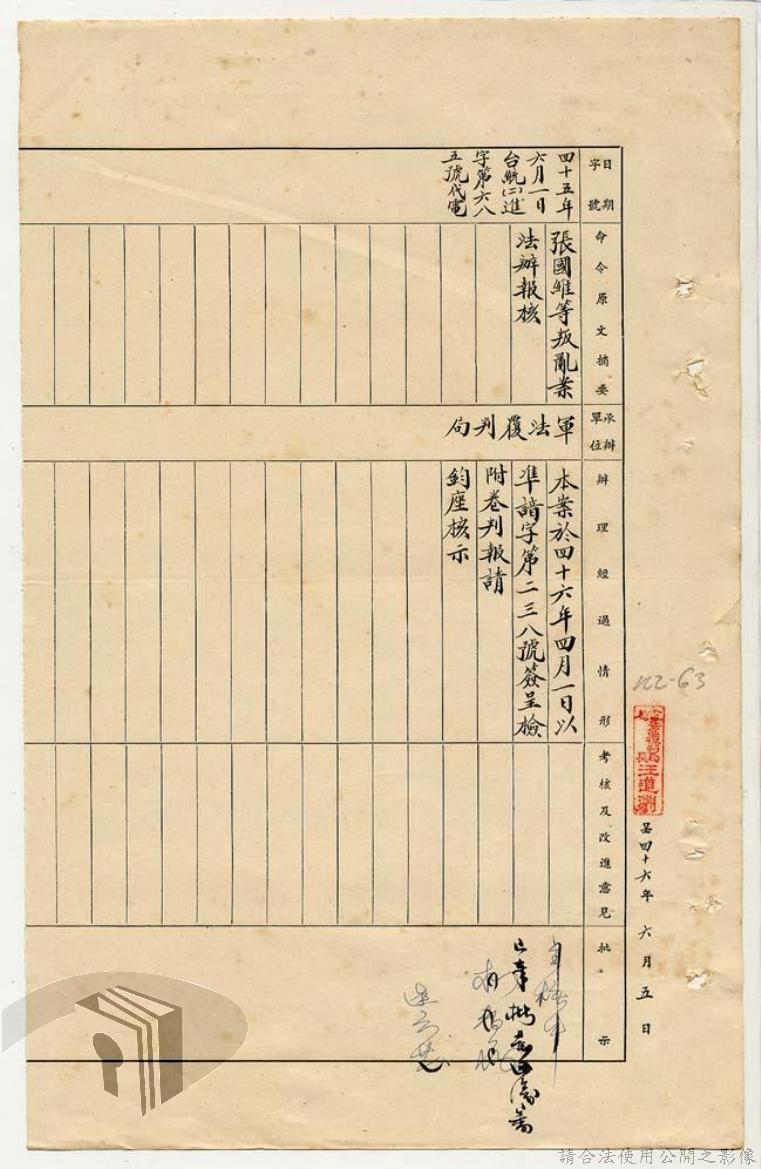 日期
字號
四十五年
六月一日
台統(二)進
字第六八
五號代電
命令原文摘要
張國維等叛亂案
法辦報核
承辦
單位
軍法覆判局
辦理經過情形
本案於四十六年四月一日以
準諳字第二三八號簽呈檢
附卷判報請
鈞座核示
考核及改進意見
批示
局長汪道淵
呈四十六年六月五日
請合法使用公開之影像